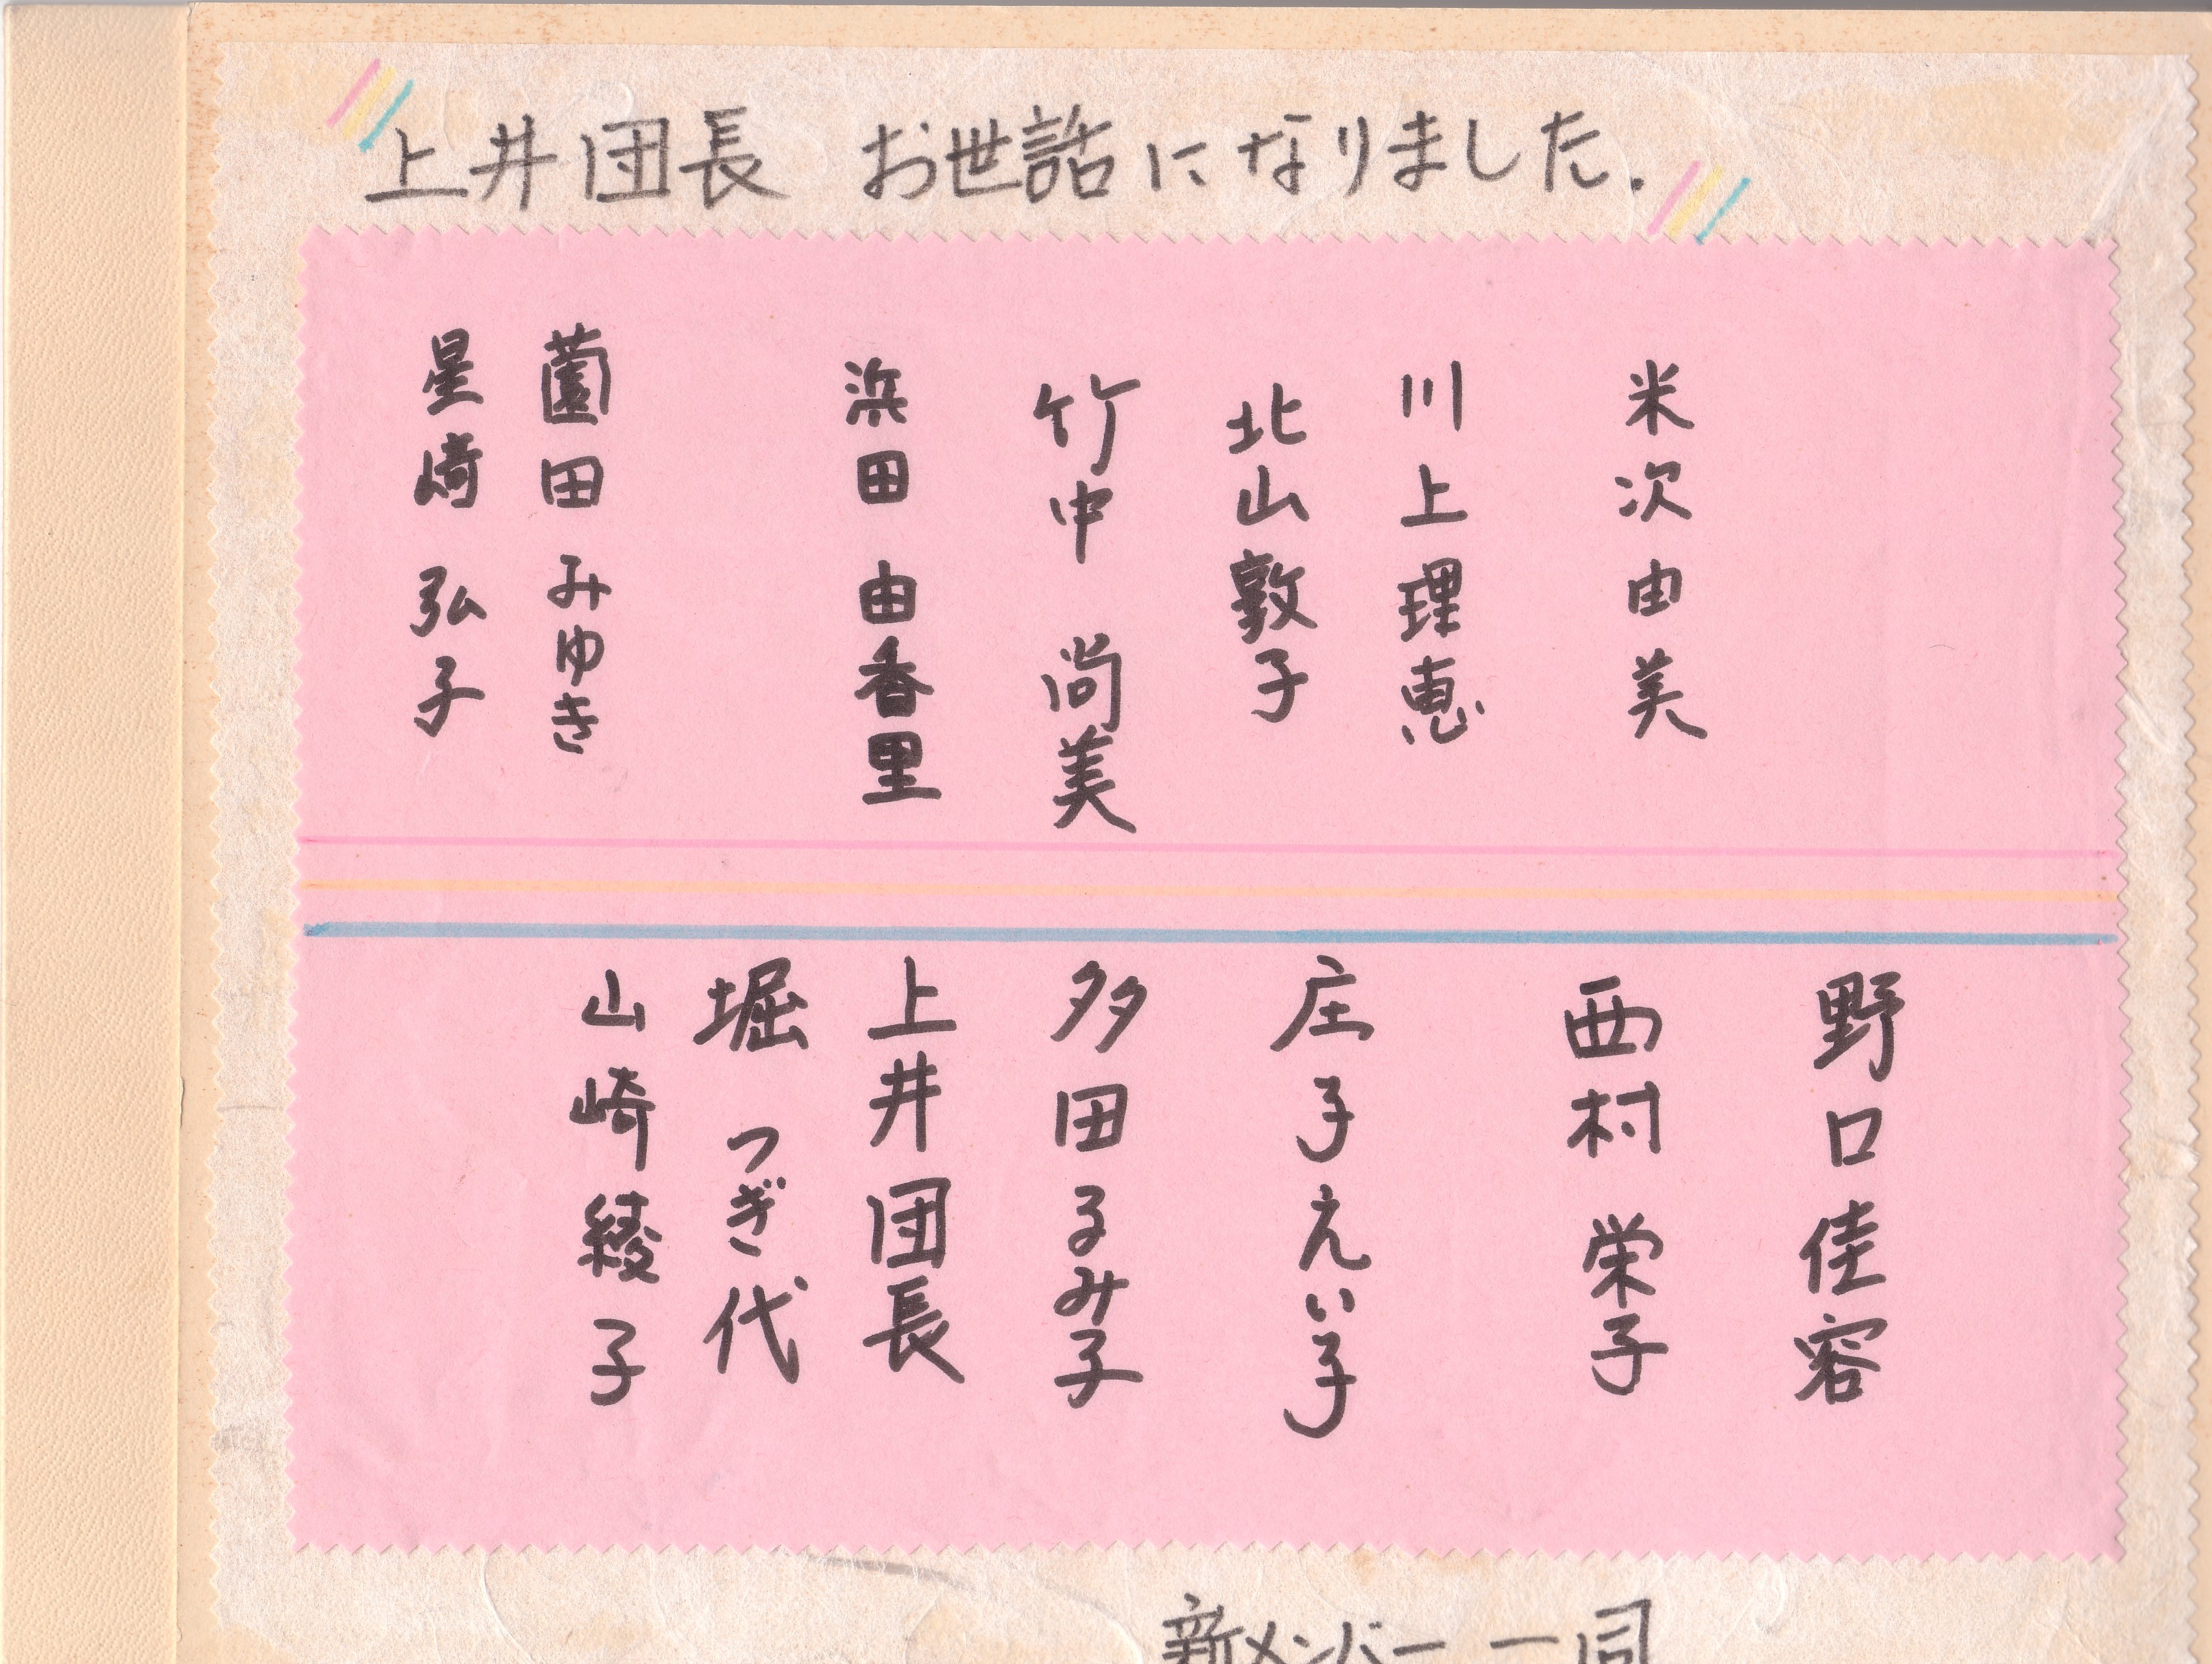 上井団長 お世話になりました.
米次由美
川上理恵
北山敦子
竹中 尚美
浜田 由香里
薗田 みゆき
星崎 弘子
野口佳容
西村 栄子
庄子えい子
多田るみ子
上井団長
堀 つぎ代
山崎綾子
新メンバー 一同